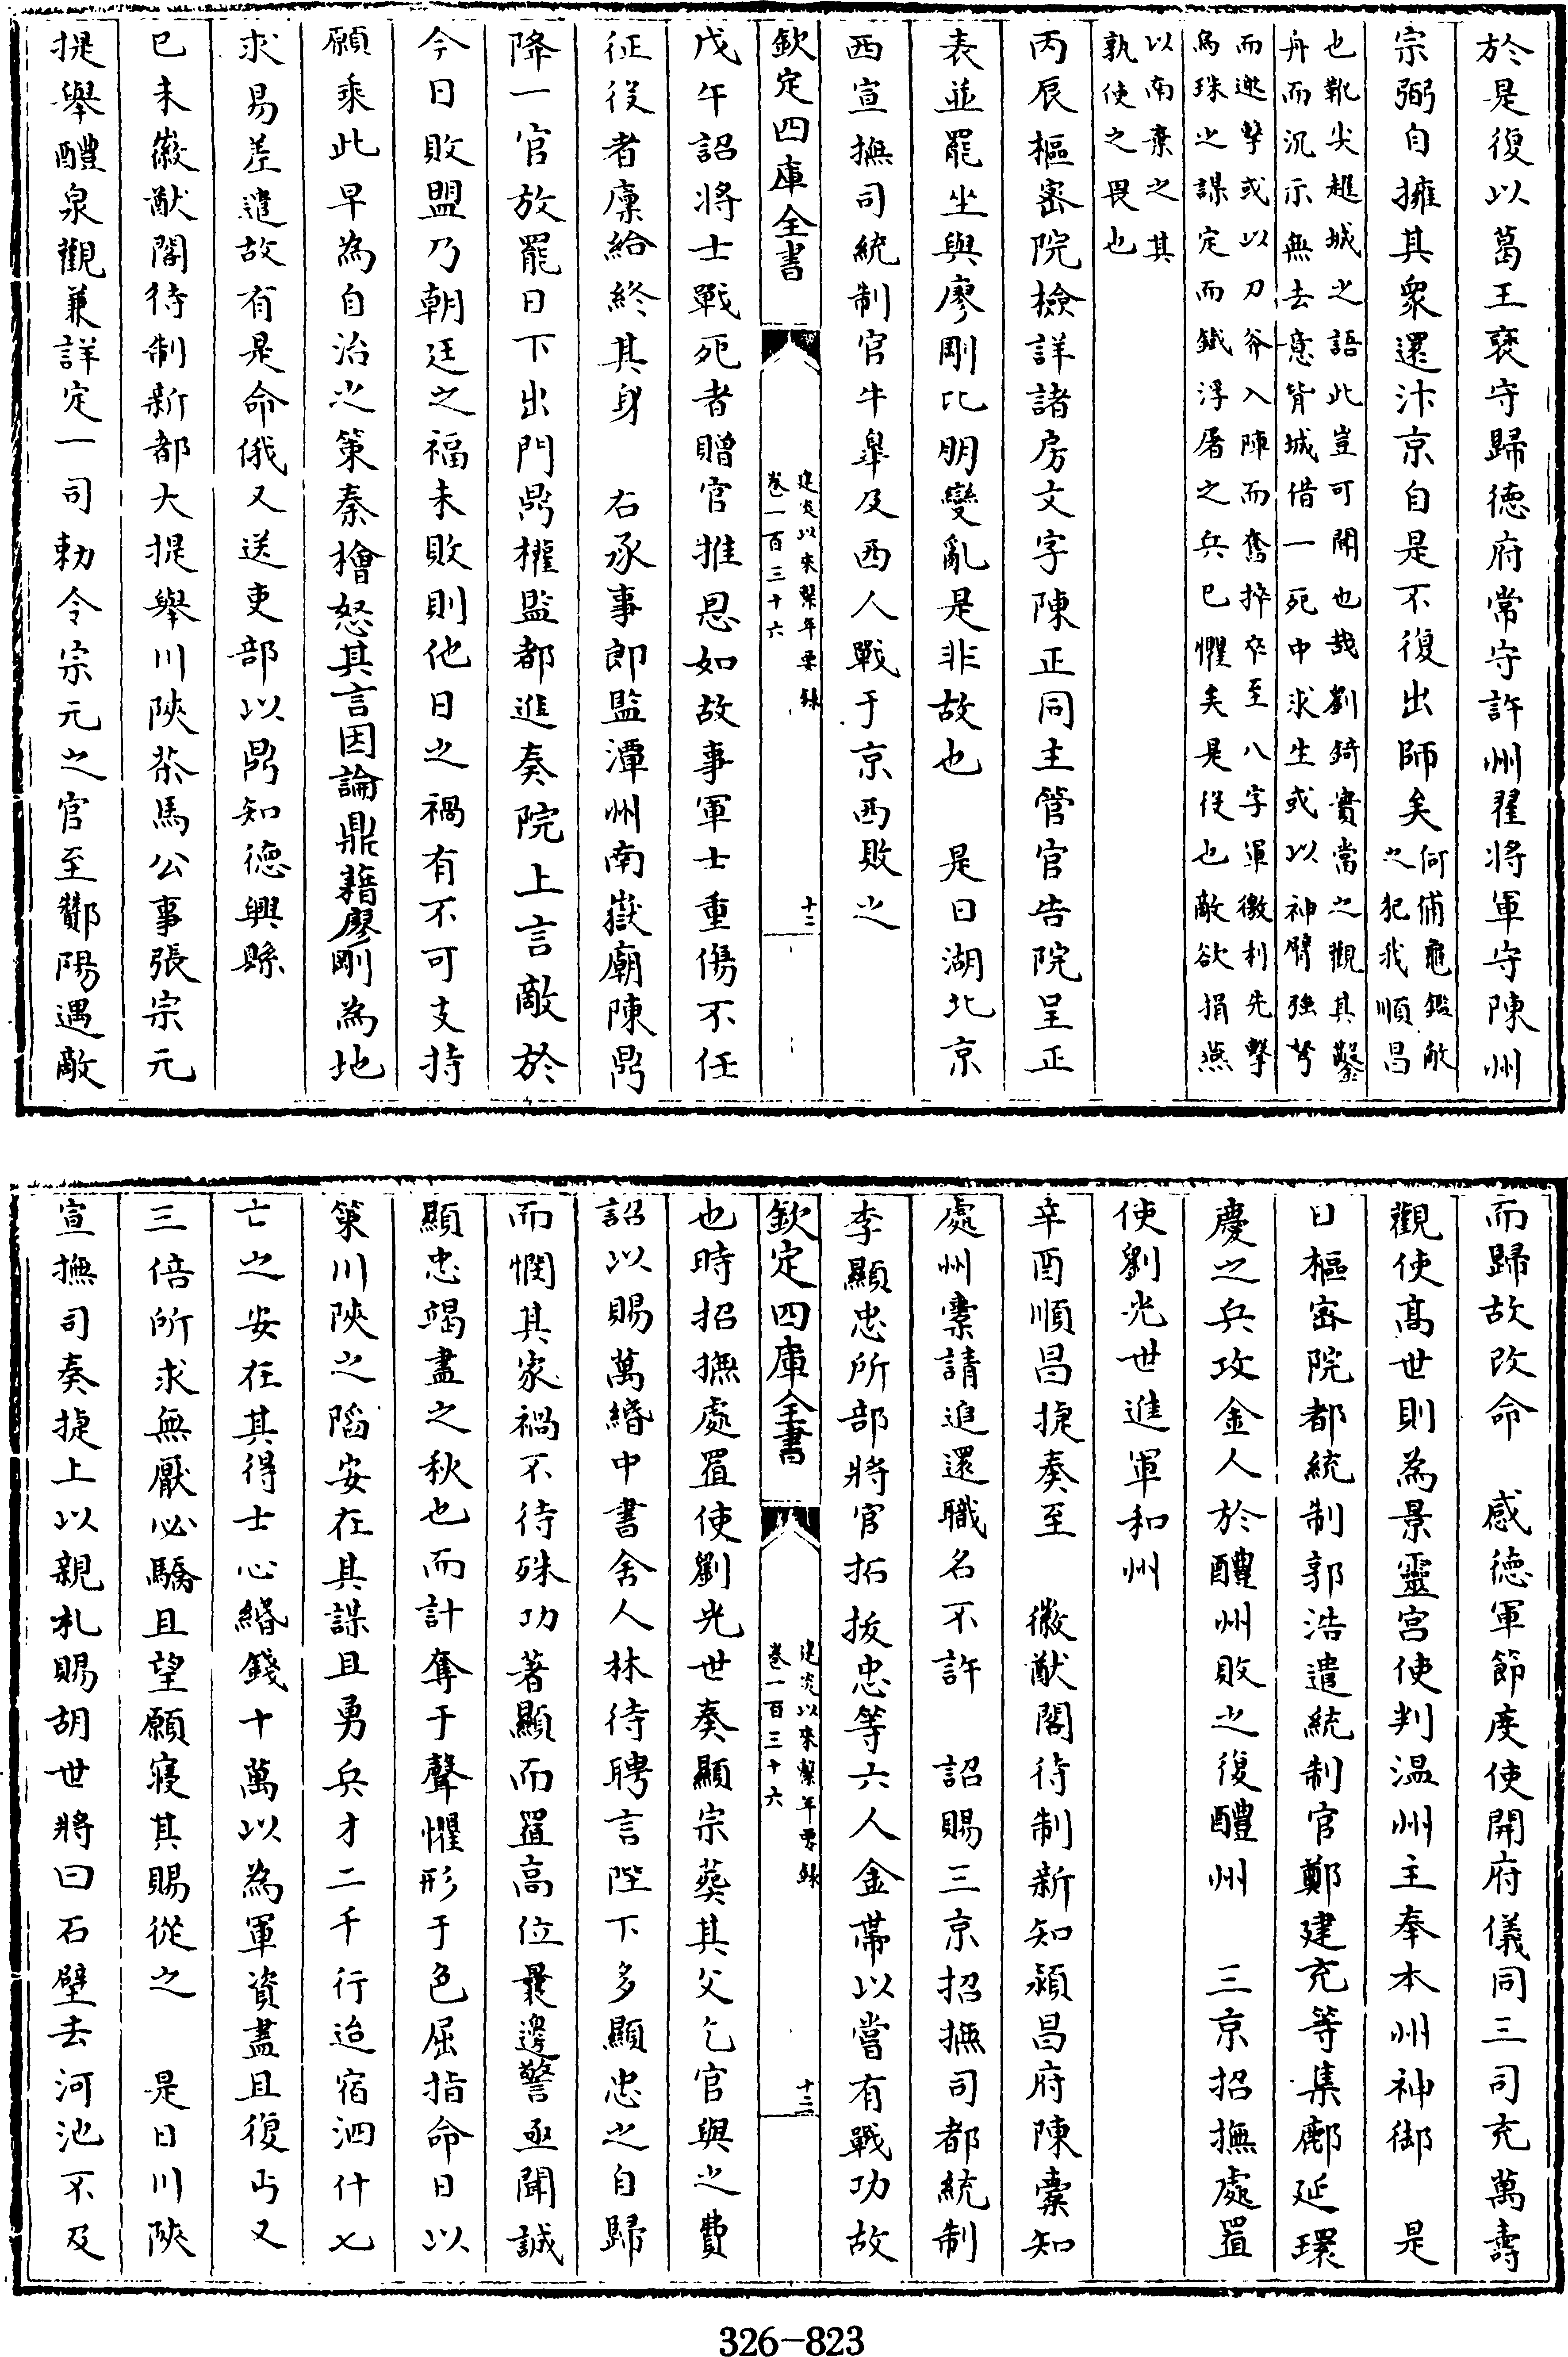 於是復以葛王襃守歸德府常守許州翟將軍守陳州
宗弼自擁其衆還汴京自是不復出師矣何俌龜鑑敵
之犯我順昌
也靴尖趯城之語此豈可聞也哉劉錡實當之觀其鑿
舟而沉示無去意背城借一死中求生或以神臂強弩
而邀擊或以刀斧入陣而奮捽卒至八字軍徼利先擊
烏珠之謀定而鐵浮屠之兵已懼矣是從也敵欲捐燕
以南棄之其
孰使之畏也
丙辰樞密院檢詳諸房文字陳正同主管官告院呈正
表並罷坐與廖剛比朋變亂是非故也　是日湖北京
西宣撫司統制官牛臯及西人戰于京西敗之
欽定四庫全書
建炎以來繫年要錄
卷一百三十六
十二
戊午詔將士戰死者贈官推恩如故事軍士重傷不任
征役者廩給終其身　右承事郎監潭州南嶽廟陳鼎
降一官放罷日下出門鼎權監都進奏院上言敵於
今日敗盟乃朝廷之福未敗則他日之禍有不可支持
願乘此早為自治之策秦檜怒其言因論鼎藉廖剛為地
求易差遣故有是命俄又送吏部以鼎知德興縣
已未徽猷閣待制新都大提舉川陝茶馬公事張宗元
提舉醴泉觀兼詳定一司勅令宗元之官至酇陽遇敵
而歸故改命　感德軍節度使開府儀同三司充萬壽
觀使髙世則為景靈宮使判温州主奉本州神御　是
日樞密院都統制郭浩遣統制官鄭建充等集鄜延環
慶之兵攻金人於醴州敗之復醴州　三京招撫處置
使劉光世進軍和州
辛酉順昌捷奏至　徽猷閣待制新知潁昌府陳橐知
處州橐請追還職名不許　詔賜三京招撫司都統制
李顯忠所部將官拓拔忠等六人金帶以嘗有戰功故
欽定四庫全書
建炎以來繫年要錄
卷一百三十六
十三
也時招撫處置使劉光世奏顯宗葬其父乞官與之費
詔以賜萬緡中書舍人林待聘言陛下多顯忠之自歸
而憫其家禍不待殊功著顯而置高位曩邊警亟聞誠
顯忠竭盡之秋也而計奪于聲懼形于色屈指命日以
策川陝之䧟安在其謀且勇兵才二千行迨宿泗什七
亡之安在其得士心緡錢十萬以為軍資盡且復丐又
三倍所求無厭必驕且望願寢其賜從之　是日川陝
宣撫司奏捷上以親札賜胡世將曰石壁去河池不及
326-823